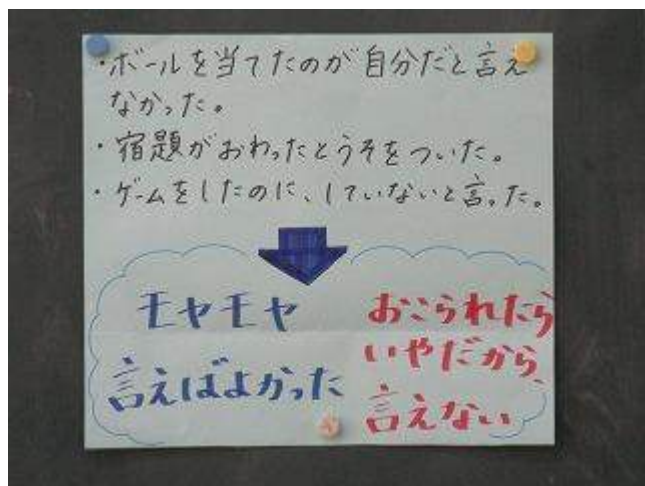 ・ボールを当てたのが自分だと言え
なかった。
・宿題がおわったとうそをついた。
・ゲームをしたのに、していないと言った。
モヤモヤ
言えばよかった
おこられたら
いやだから、
言えない